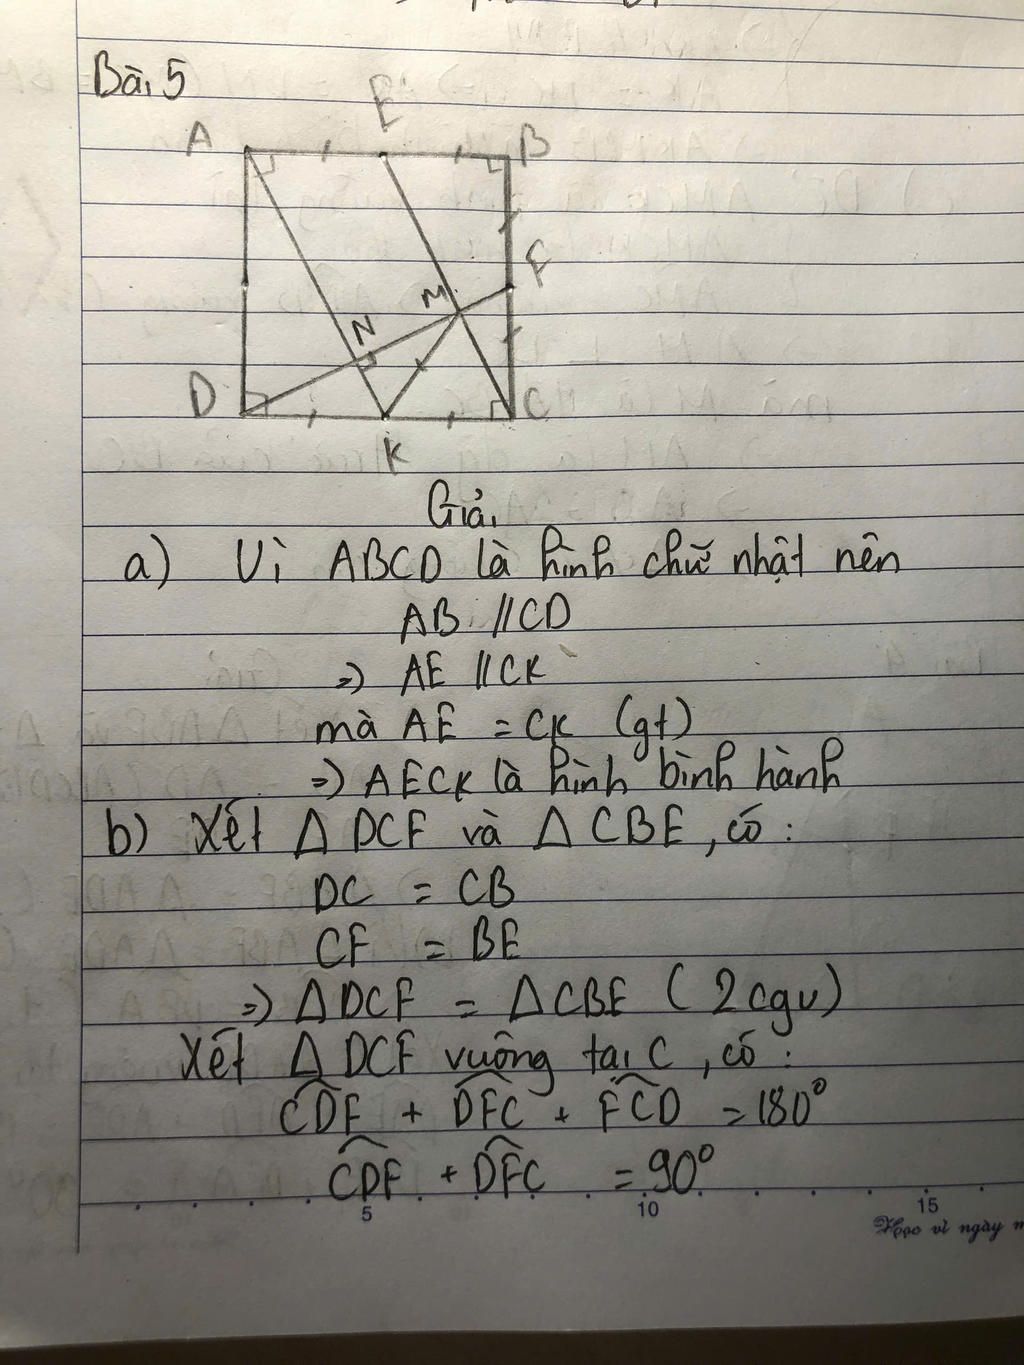 Bài 5
A
E
B
F
M
N
D
C
K
Giải
a) Vì ABCD là hình chữ nhật nên
AB // CD
=> AE // CK
mà AE = CK (gt)
=> AECK là hình bình hành
b) Xét Δ DCF và Δ CBE, có :
DC = CB
CF = BE
=> Δ DCF = Δ CBE ( 2cgv)
Xét Δ DCF vuông tại C, có :
CDF + DFC + FCD = 180°
CDF + DFC = 90°
5 10 15
Học vì ngày m